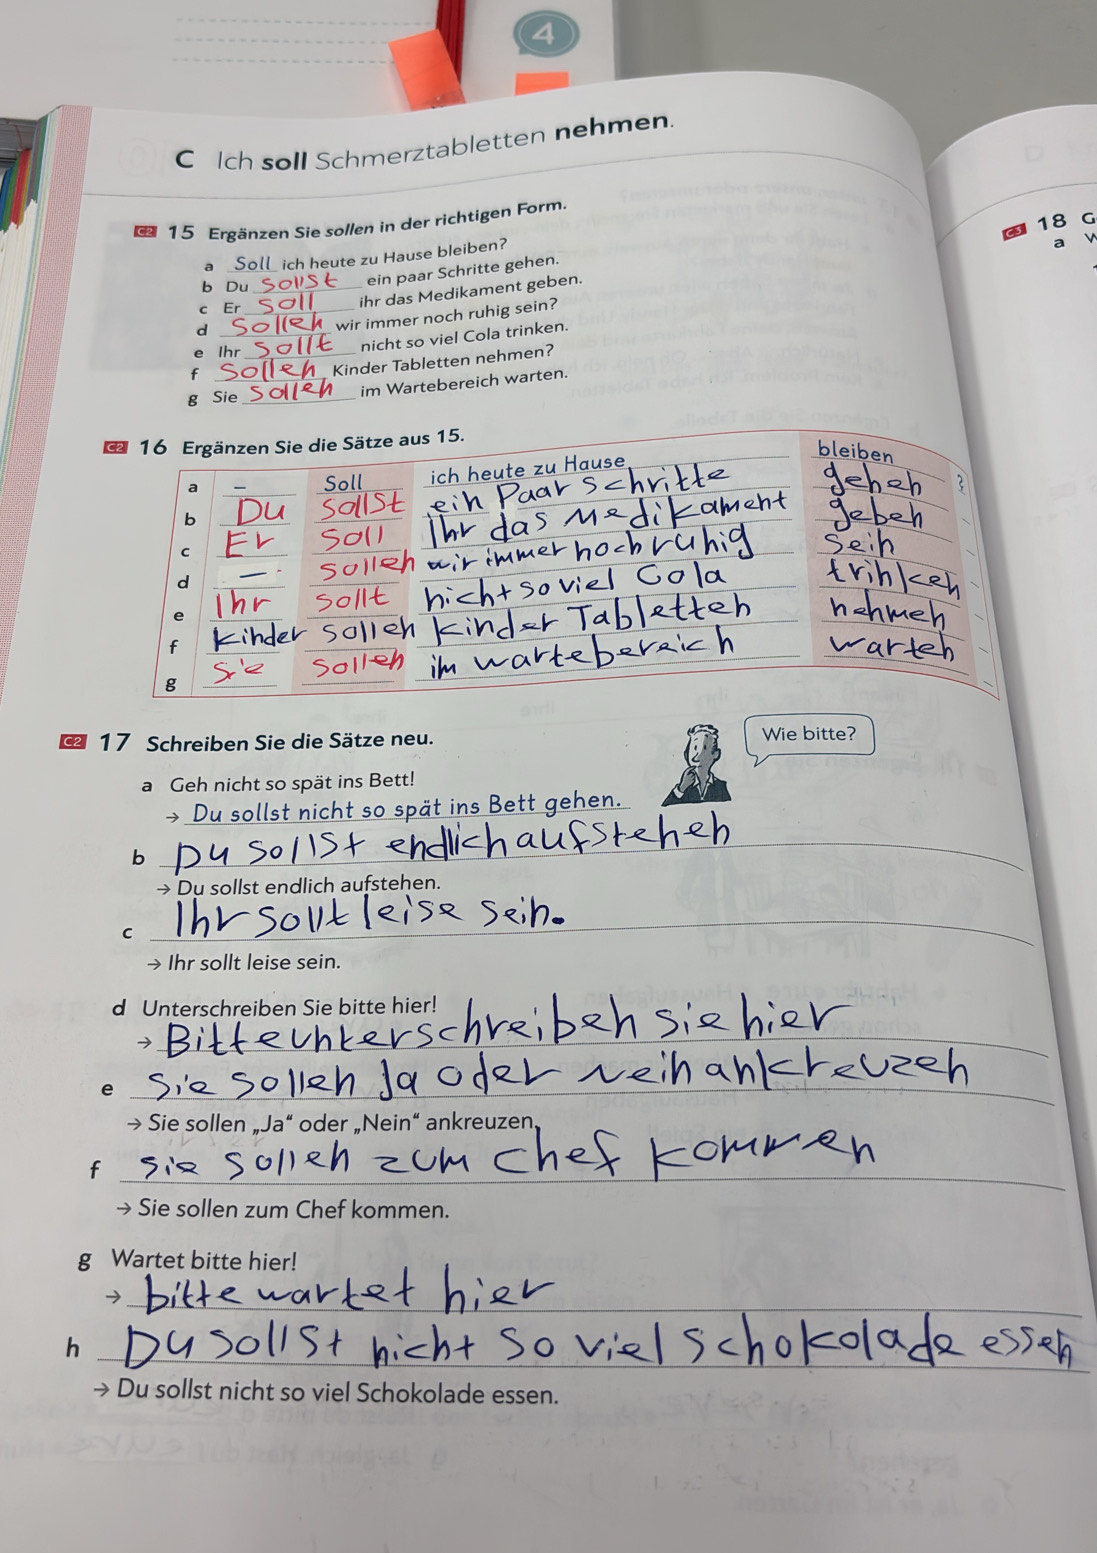 4
C Ich soll Schmerztabletten nehmen.
C2 15 Ergänzen Sie sollen in der richtigen Form.
a Soll ich heute zu Hause bleiben?
b Du sollst ein paar Schritte gehen.
c Er soll ihr das Medikament geben.
d sollen wir immer noch ruhig sein?
e Ihr sollt nicht so viel Cola trinken.
f sollen Kinder Tabletten nehmen?
g Sie sollen im Wartebereich warten.
C2 16 Ergänzen Sie die Sätze aus 15.
a – Soll ich heute zu Hause bleiben ?
b Du sollst ein Paar schritte gehen
c Er soll Ihr das Medikament geben
d – sollen wir immer noch ruhig sein
e Ihr sollt nicht so viel Cola trinken
f kinder sollen kinder Tabletten nehmen
g sie sollen im wartebereich warten
C2 17 Schreiben Sie die Sätze neu.
Wie bitte?
a Geh nicht so spät ins Bett!
→ Du sollst nicht so spät ins Bett gehen.
b Du sollst endlich aufstehen
→ Du sollst endlich aufstehen.
c Ihr sollt leise sein.
→ Ihr sollt leise sein.
d Unterschreiben Sie bitte hier!
→ Bitte unterschreiben sie hier
e sie sollen Ja oder Nein ankreuzen
→ Sie sollen „Ja“ oder „Nein“ ankreuzen.
f sie sollen zum Chef kommen
→ Sie sollen zum Chef kommen.
g Wartet bitte hier!
→ bitte wartet hier
h Du sollst nicht so viel schokolade essen
→ Du sollst nicht so viel Schokolade essen.
C3 18 G
a